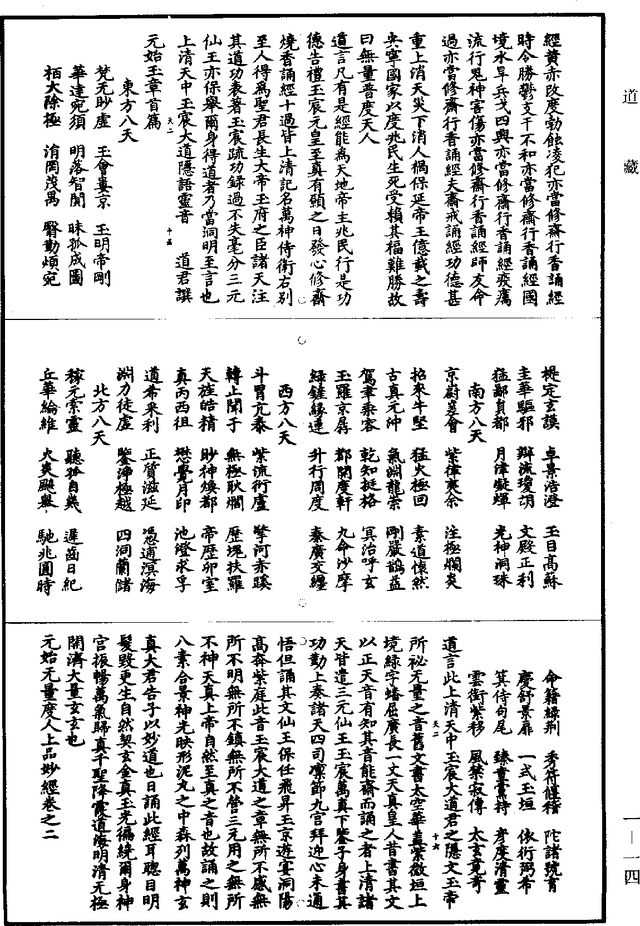 道藏
經黃赤改度勃蝕凌犯亦當修齋行香誦經
時令勝鬱支干不和亦當修齋行香誦經國
境水旱兵戈四興亦當修齋行香誦經疫癘
流行鬼神害傷亦當修齋行香誦經師友命
過亦當修齋行香誦經夫齋戒誦經功德甚
重上消天災下消人禍保延帝王億載之壽
央寧國家以度兆民生死受賴其福難勝故
曰無量普度天人
道言凡有是經能為天地帝主兆民行是功
德告禮玉宸元皇至真有顯之日發心修齋
燒香誦經十過皆上清記名萬神侍衛右別
至人得為聖君長生大帝玉府之臣諸天注
其道功表著玉宸疏功録過不失毫分三元
仙王亦保舉爾身得道者乃當洞明至言也
上清天中玉宸大道隱語靈音 道君撰
元始玉章首篇
東方八天
梵元眇虛 玉會婁京 玉明帝剛
華達宛須 明落智聞 昧狐成圖
栢大除極 消岡茂萬 臀勤煩宛
禔定玄謨 卓景浩澄 玉日高蘇
圭華驅邪 辯流瓊朗 文殿正利
猛鄙負都 月律凝輝 光神洞珠
南方八天
京尉差會 紫律爽余 注極爛炎
招來牛堅 猛火極回 素道懷然
古真元沖 氣淵龍崇 剛嚴鶴益
駕聿乘容 乾知挺格 冥治呼玄
玉羅京辱 都開度軒 九命沙摩
緑鏈緣連 升行周度 秦廣交纏
西方八天
斗胃亢秦 紫流術盧 擎河赤蹊
轉止聞于 無極耿爛 歷塊扶羅
天旌皓精 眇神煥都 帝歷卯室
真丙西徂 懋覺月印 池燈求孚
道希采利 正質滋延 馮通溟海
淵力徒虛 鑒淨極越 四洞蘭儲
北方八天
稼元索靈 聽矜自幾 遲齒日紀
丘華綸維 火炎颺舉 馳兆圓時
命籍緑荆 秀符僂稽 陀諸琉育
慶舒景扉 一式玉垣 依術弼希
箕侍句尾 臻量耋持 孝度清靈
雲衝紫移 風禁寂傳 太玄竟奇
道言此上清天中玉宸大道君之隱文玉帝
所祕無量之音舊文書太空華蓋紫微垣上
境緑字蟠屈廣長一丈天真皇人昔書其文
以正天音有知其音能齋而誦之者上清諸
天皆遣三元仙王玉宸萬真下鑒子身書其
功勤上奏諸天四司憭節九宮拜迎心未通
悟但誦其文仙王保任飛昇玉京遊宴洞陽
高奔紫庭此音玉宸大道之章無所不感無
所不明無所不鎮無所不管三元用之無所
不神天真上帝自然至真之音也故誦之則
八素合景神光映形泥丸之中森列萬神玄
真大君告子以妙道也日誦此經耳聰目明
髮毀更生自然契玄金真玉光徧繞爾身神
宮振暢萬氣歸真千聖降霞道海明清元極
開濟大量玄玄也
元始无量度人上品妙經卷之二
一—一四